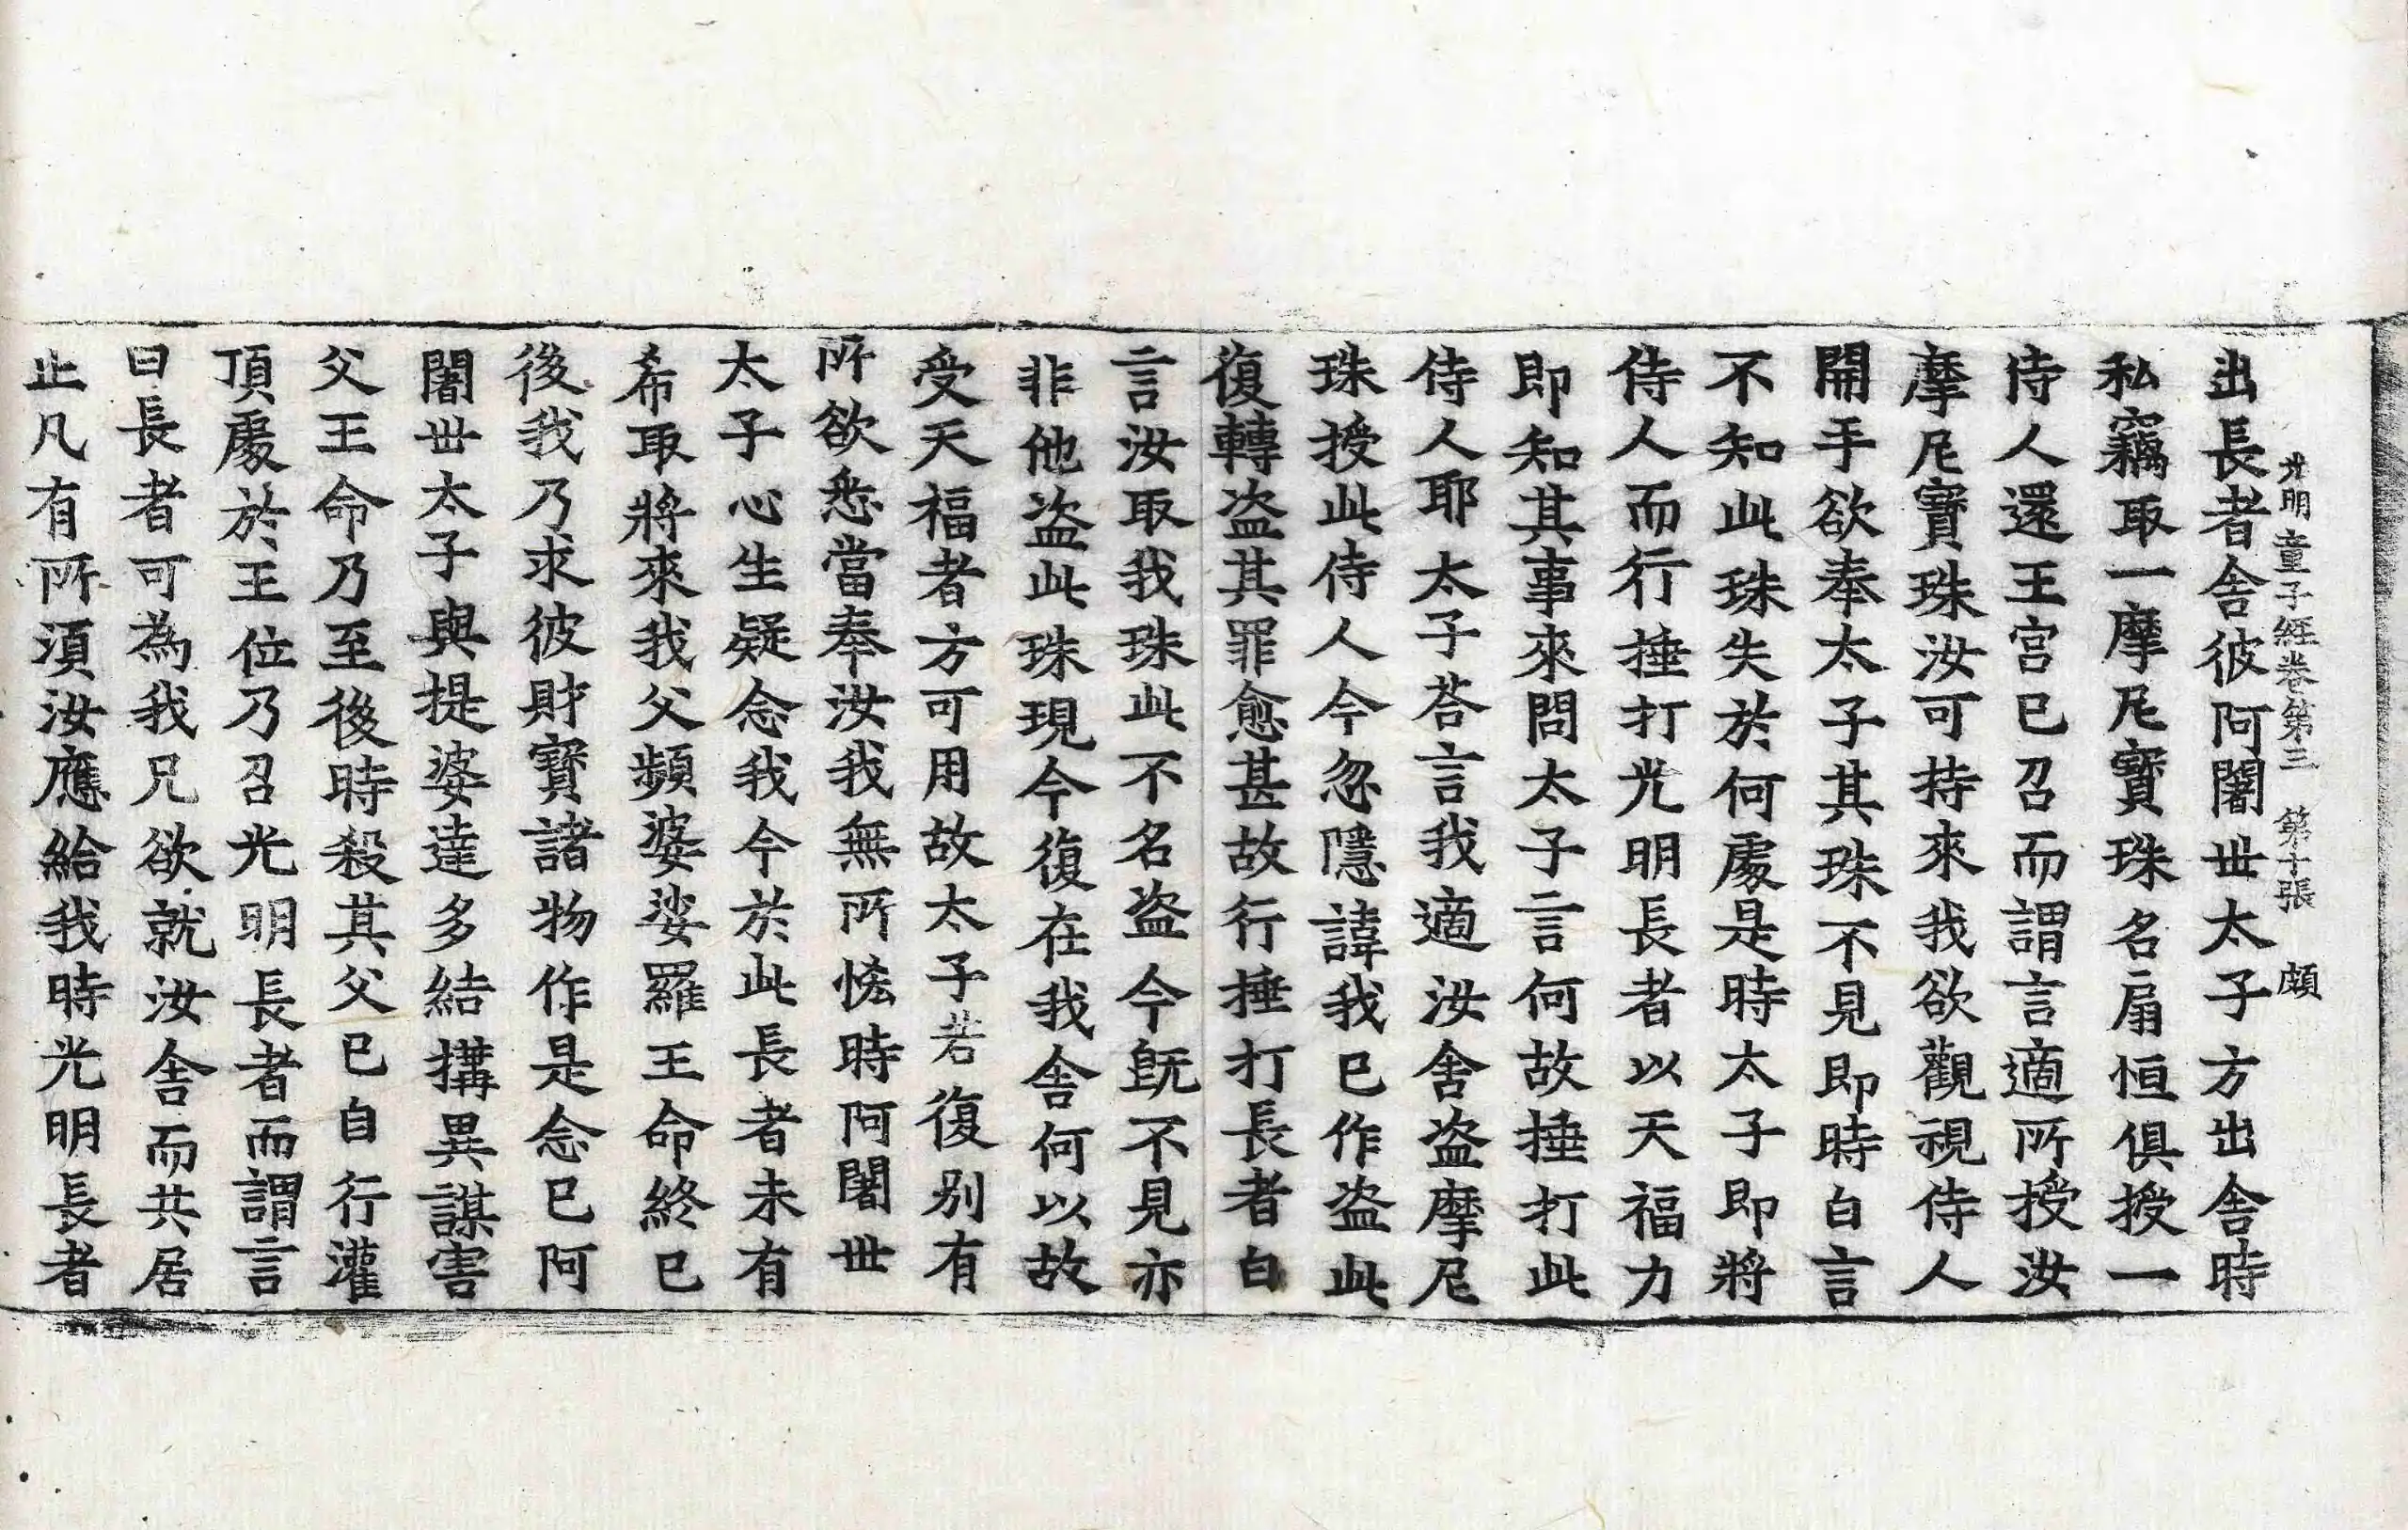 光明童子經卷第三　第十張　頗
出長者舍彼阿闍世太子方出舍時
私竊取一摩尼寶珠名扇恒俱授一
侍人還王宮已召而謂言適所授汝
摩尼寶珠汝可持來我欲觀視侍人
開手欲奉太子其珠不見即時白言
不知此珠失於何處是時太子即將
侍人而行捶打光明長者以天福力
即知其事來問太子言何故捶打此
侍人耶太子荅言我適汝舍盜摩尼
珠授此侍人今忽隱諱我已作盜此
復轉盜其罪愈甚故行捶打長者白
言汝取我珠此不名盜今旣不見亦
非他盜此珠現今復在我舍何以故
受天福者方可用故太子若復别有
所欲悉當奉汝我無所悋時阿闍世
太子心生疑念我今於此長者未有
希取將來我父頻婆娑羅王命終已
後我乃求彼財寶諸物作是念已阿
闍世太子與提婆達多結搆異謀害
父王命乃至後時殺其父已自行灌
頂處於王位乃召光明長者而謂言
曰長者可為我兄欲就汝舍而共居
止凡有所須汝應給我時光明長者